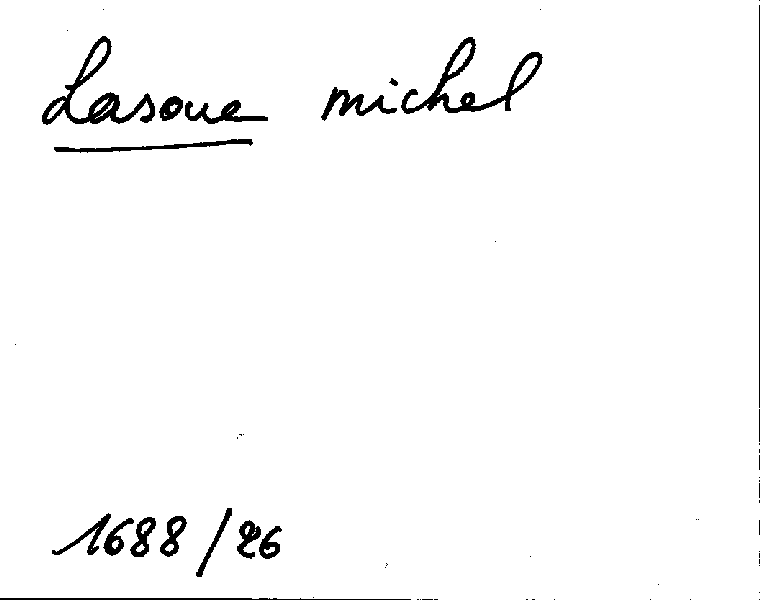 Lasoue michel
1688/26